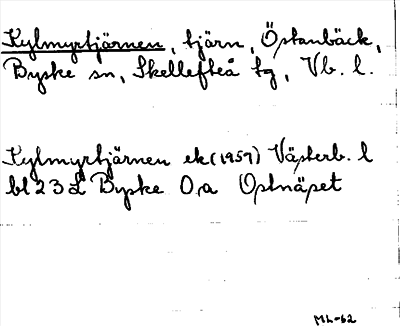 Kylmyrtjärnen, tjärn, Östanbäck,
Byske sn, Skellefteå tg, Vb. l.
Kylmyrtjärnen ek (1959) Västerb. l
bl 23 L Byske O,a Ostnäset
ML-62